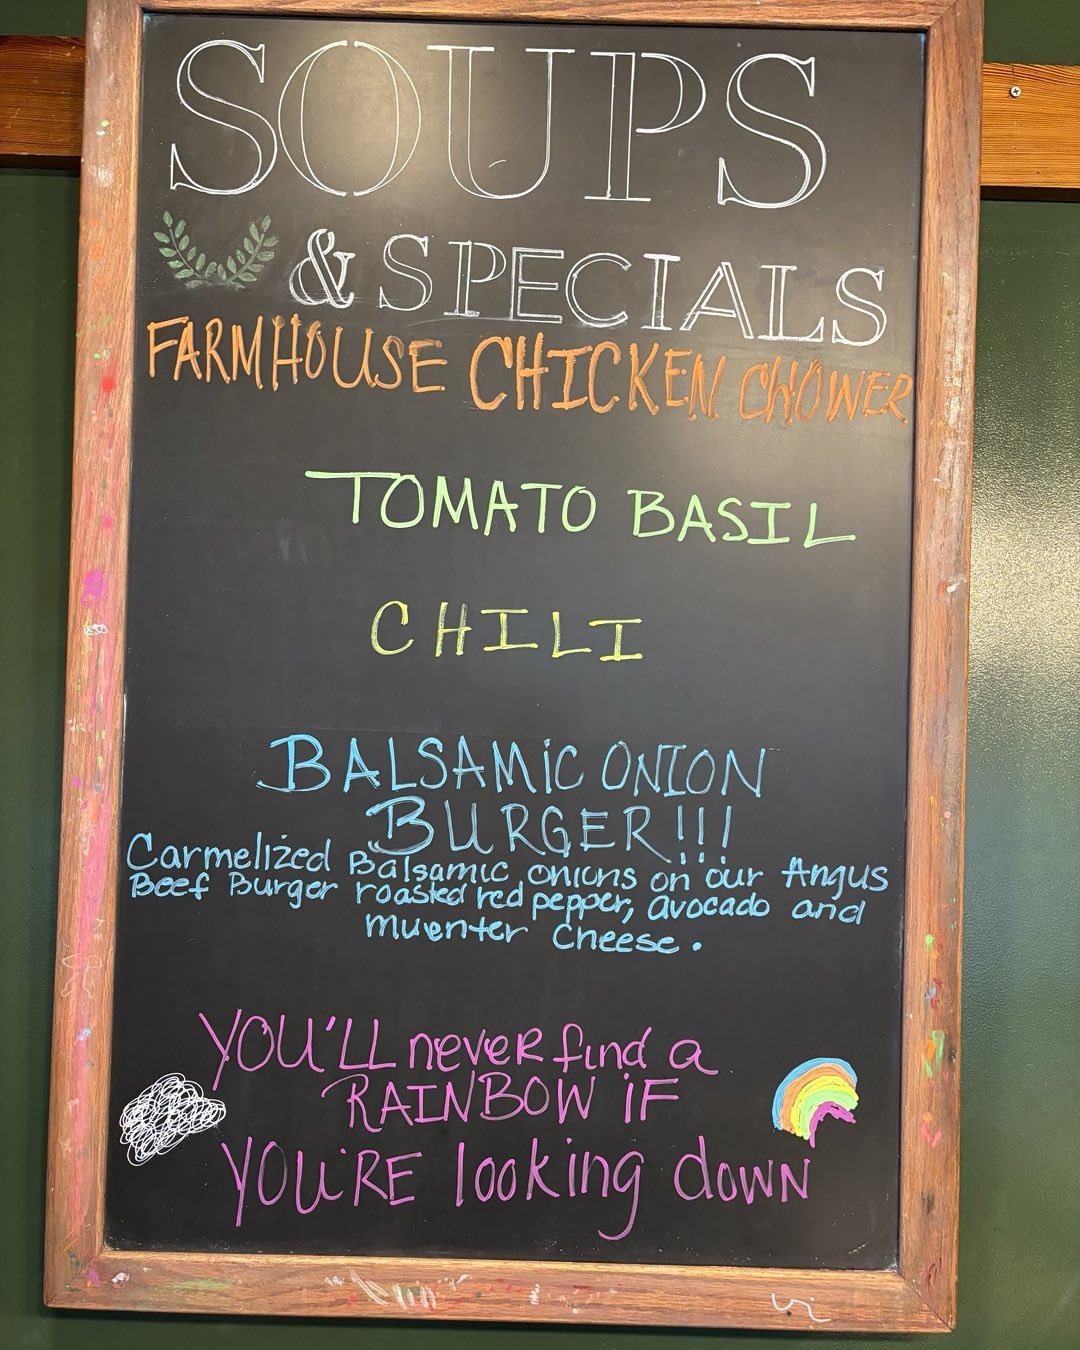 SOUPS
& SPECIALS
FARMHOUSE CHICKEN CHOWER
TOMATO BASIL
CHILI
BALSAMiC ONION
BURGER!!!
Carmelized Balsamic onions on our Angus
Beef Burger roasted red pepper, avocado and
muenter cheese.
YOU'LL neveR find a
RAINBOW iF
YOU'RE looking down